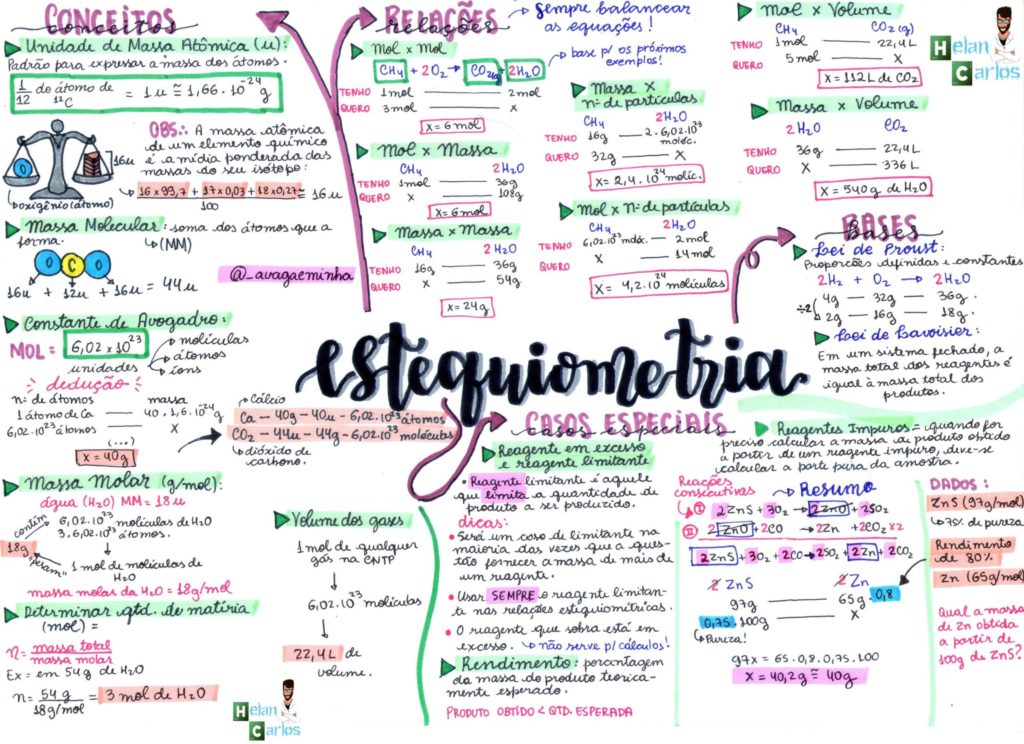 CONCEITOS
conceitos
Unidade de Massa Atômica (u):
Padrão para expressar a massa dos átomos.
1/12 do átomo de ¹²C = 1u ≅ 1,66 . 10⁻²⁴ g
O
16u
(oxigênio (átomo)
OBS.: A massa atômica
de um elemento químico
é a média ponderada das
massas do seu isótopo:
16 x 99,7 + 17 x 0,03 + 18 x 0,27 ≅ 16 u
100
Massa Molecular: soma dos átomos que a
forma. (MM)
O C O
16u + 12u + 16u = 44u
Constante de Avogadro:
MOL = 6,02 x 10²³
unidades
moléculas
átomos
íons
dedução
nº de átomos massa
1 átomo de Ca — 40 . 1,6 . 10⁻²⁴ g
6,02 . 10²³ átomos — X
(...)
X = 40g
Cálcio
Ca - 40g - 40u - 6,02.10²³ átomos
CO₂ - 44u - 44g - 6,02.10²³ moléculas
dióxido de
carbono.
Massa Molar (g/mol):
água (H₂O) MM = 18u
contém
6,02.10²³ moléculas de H₂O
3.6,02.10²³ átomos.
18g
"pesam"
1 mol de moléculas de
H₂O
massa molar da H₂O = 18g/mol
Determinar qtd. de matéria
(mol) =
n = massa total
massa molar
Ex = em 54g de H₂O
n = 54 g = 3 mol de H₂O
18g/mol
Volume dos gases
1 mol de qualquer
gás na CNTP
6,02.10²³ moléculas
22,4 L de
volume.
Helan
Carlos
@_avagaeminha
estequiometria
RELAÇÕES
relações
Sempre balancear
as equações!
Mol x Mol
CH₄ + 2O₂ → CO₂(g) + 2H₂O
base p/ os próximos
exemplos!
TENHO 1mol — 2mol
QUERO 3mol — X
X = 6 mol
Mol x Massa
CH₄ 2H₂O
TENHO 1mol — 36g
QUERO X — 108g
X = 6mol
Massa x Massa
CH₄ 2H₂O
TENHO 16g — 36g
QUERO X — 54g
X = 24g
Massa X
nº de partículas
TENHO 16g — 2 . 6,02.10²³
moléc.
QUERO 32g — X
X = 2,4 . 10²⁴ moléc.
Mol x Nº de partículas
CH₄ 2H₂O
TENHO 6,02.10²³ moléc. — 2mol
QUERO X — 14mol
X = 4,2.10²⁴ moléculas
Mol x Volume
CH₄ CO₂(g)
TENHO 1mol — 22,4L
QUERO 5 mol — X
X = 112L de CO₂
Massa x Volume
2H₂O CO₂
TENHO 36g — 22,4L
QUERO X — 336L
X = 540g de H₂O
Helan
Carlos
BASES
bases
Lei de Proust:
Proporções definidas e constantes
2H₂ + O₂ → 2H₂O
÷2 4g — 32g — 36g.
2g — 16g — 18g.
Lei de Lavoisier:
Em um sistema fechado, a
massa total dos reagentes é
igual à massa total dos
produtos.
CASOS ESPECIAIS
casos especiais
Reagente em excesso
e reagente limitante
• Reagente limitante é aquele
que limita a quantidade de
produto a ser produzido.
dicas:
• Será um caso de limitante na
maioria das vezes que a ques-
tão fornecer a massa de mais de
um reagente.
• Usar SEMPRE o reagente limitan-
te nas relações estequiométricas.
• O reagente que sobra está em
excesso. não serve p/ cálculos!
Rendimento: porcentagem
da massa do produto teorica-
mente esperado.
PRODUTO OBTIDO < QTD. ESPERADA
Reagentes Impuros = quando for
preciso calcular a massa de produto obtido
a partir de um reagente impuro, deve-se
calcular a parte pura da amostra.
Reações
consecutivas
Resumo
I 2ZnS + 3O₂ → 2ZnO + 2SO₂
II 2ZnO + 2CO → 2Zn + 2CO₂ x2
2ZnS + 3O₂ + 2CO → 2SO₂ + 2Zn + 2CO₂
2 ZnS 2 Zn
97g — 65g . 0,8
0,75 . 100g — X
Pureza!
97x = 65 . 0,8 . 0,75 . 100
X = 40,2g ≅ 40g
DADOS:
ZnS (97g/mol)
75% de pureza
Rendimento
de 80%
Zn (65g/mol)
Qual a massa
de Zn obtida
a partir de
100g de ZnS?
Helan
Carlos